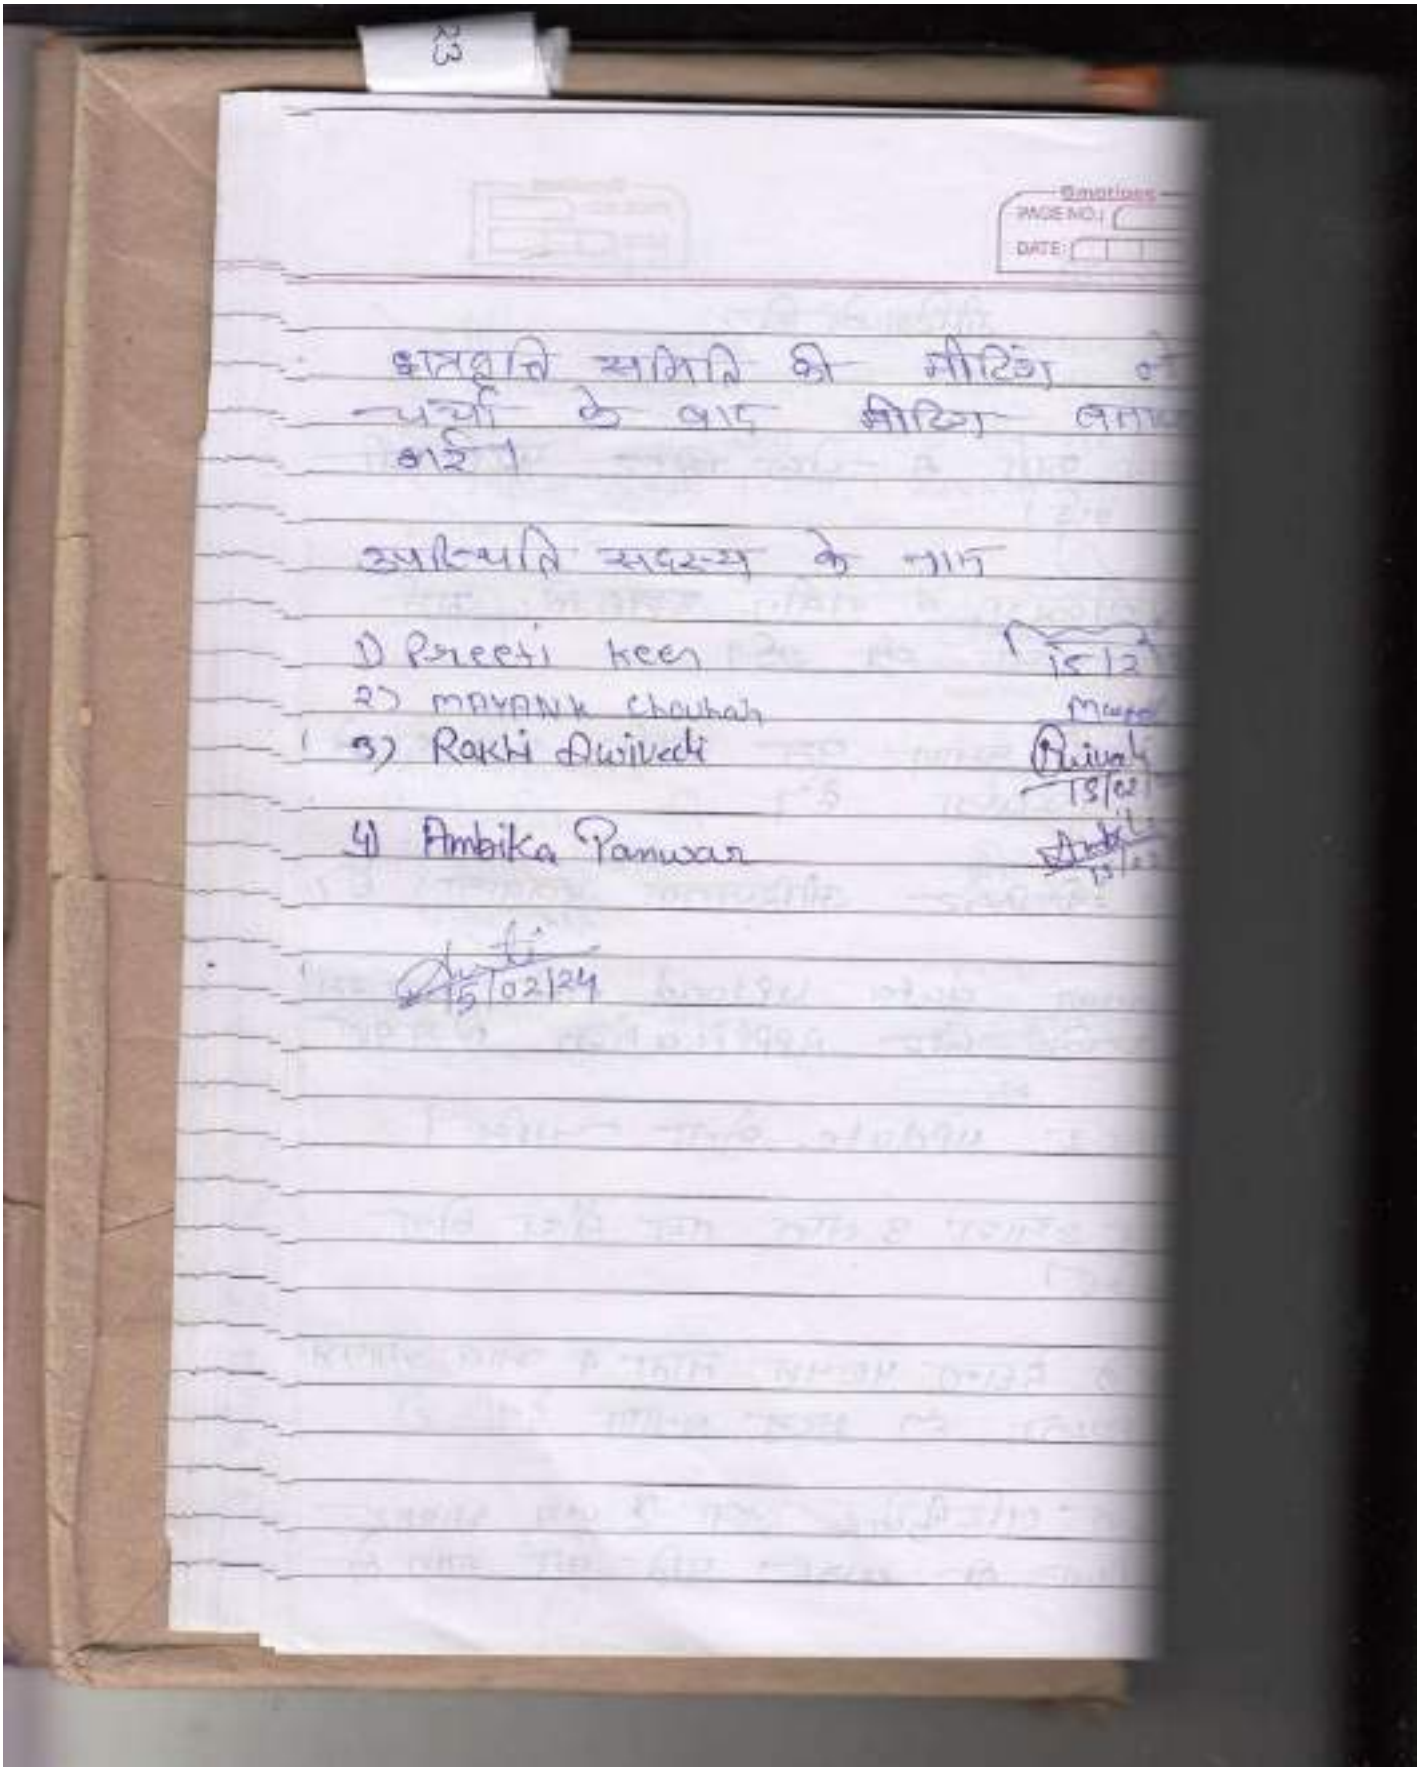 23
Bmotions
PAGE NO.:
DATE:
छात्रवृत्ति समिति की मीटिंग
चर्चा के बाद मीटिंग
गई।
उपस्थिति सदस्य के नाम
1) Preeti Keer 15/2
2) MAYANK Chouhan
3) Rakhi Dwivedi Dwivedi
15/02/
4) Ambika Panwar
15/02/24